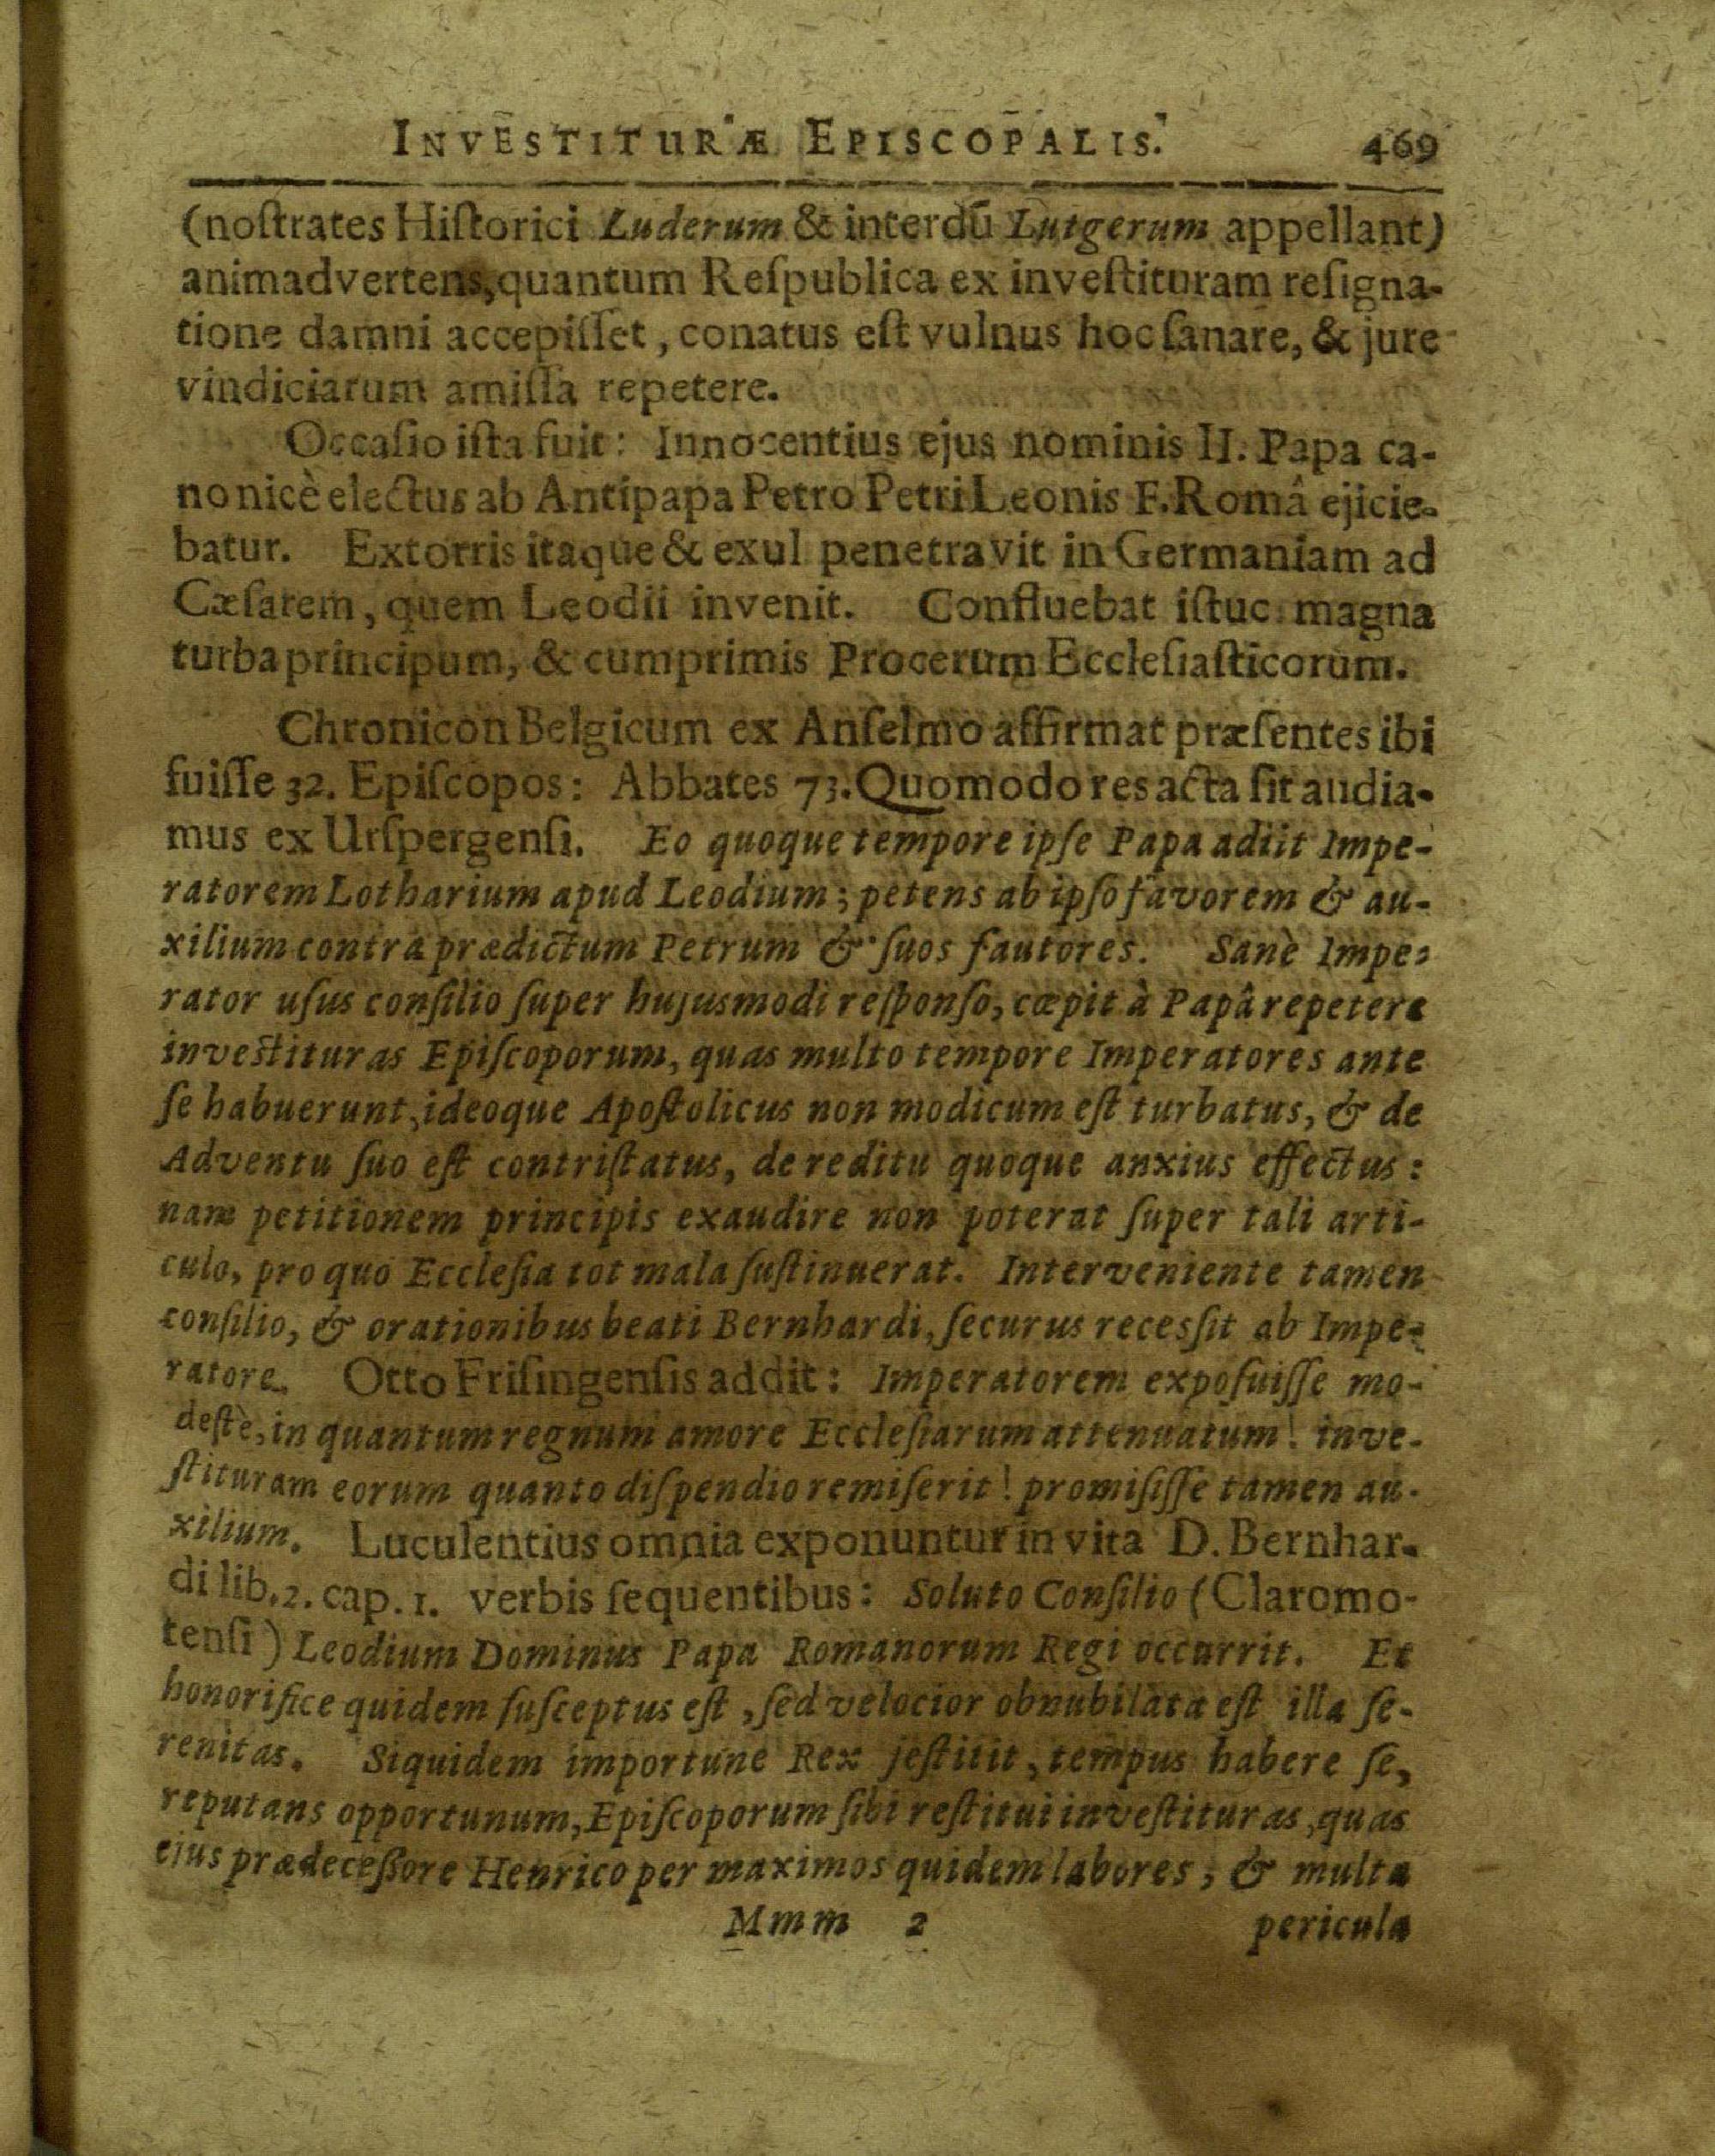 INVESTITURÆ EPISCOPALIS. 469
(noſtrates Hiſtorici Luderum & interdū Lutgerum appellant)
animadvertens, quantum Reſpublica ex inveſtituram reſigna-
tione damni accepiſſet, conatus eſt vulnus hoc ſanare, & jure
vindiciarum amiſſa repetere.
Occaſio iſta fuit: Innocentius ejus nominis II. Papa ca-
nonicè electus ab Antipapa Petro Petri Leonis F. Româ ejicie-
batur. Extorris itaque & exul penetravit in Germaniam ad
Cæſarem, quem Leodii invenit. Confluebat iſtuc magna
turba principum, & cumprimis Procerum Eccleſiaſticorum.
Chronicon Belgicum ex Anſelmo affirmat præſentes ibi
fuiſſe 32. Epiſcopos: Abbates 73. Quomodo res acta ſit audia-
mus ex Urſpergenſi. Eo quoque tempore ipſe Papa adiit Impe-
ratorem Lotharium apud Leodium; petens ab ipſo favorem & au-
xilium contra prædictum Petrum & ſuos fautores. Sanè Impe-
rator uſus conſilio ſuper hujusmodi reſponſo, cœpit à Papâ repetere
inveſtituras Epiſcoporum, quas multo tempore Imperatores ante
ſe habuerunt, ideoque Apoſtolicus non modicum eſt turbatus, & de
Adventu ſuo eſt contriſtatus, de reditu quoque anxius effectus:
nam petitionem principis exaudire non poterat ſuper tali arti-
culo, pro quo Eccleſia tot mala ſuſtinuerat. Interveniente tamen
conſilio, & orationibus beati Bernhardi, ſecurus receſſit ab Impe-
ratore. Otto Friſingenſis addit: Imperatorem expoſuiſſe mo-
deſtè, in quantum regnum amore Eccleſiarum attenuatum! inve-
ſtituram eorum quanto diſpendio remiſerit! promiſiſſe tamen au-
xilium. Luculentius omnia exponuntur in vita D. Bernhar-
di lib. 2. cap. 1. verbis ſequentibus: Soluto Conſilio (Claromo-
tenſi) Leodium Dominus Papa Romanorum Regi occurrit. Et
honorifice quidem ſuſceptus eſt, ſed velocior obnubilata eſt illa ſe-
renitas. Siquidem importune Rex jeſtitit, tempus habere ſe,
reputans opportunum, Epiſcoporum ſibi reſtitui inveſtituras, quas
ejus prædeceſſore Henrico per maximos quidem labores, & multa
Mmm 2 pericula